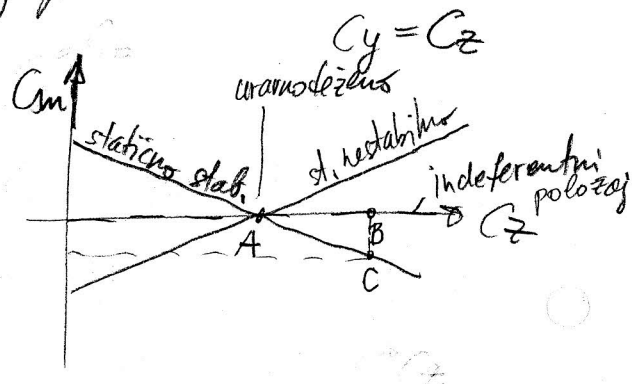 Cy = Cz
Cm
uravnoteženo
statično stab.
st. nestabilno
indeferentni
položaj
Cz
A
B
C